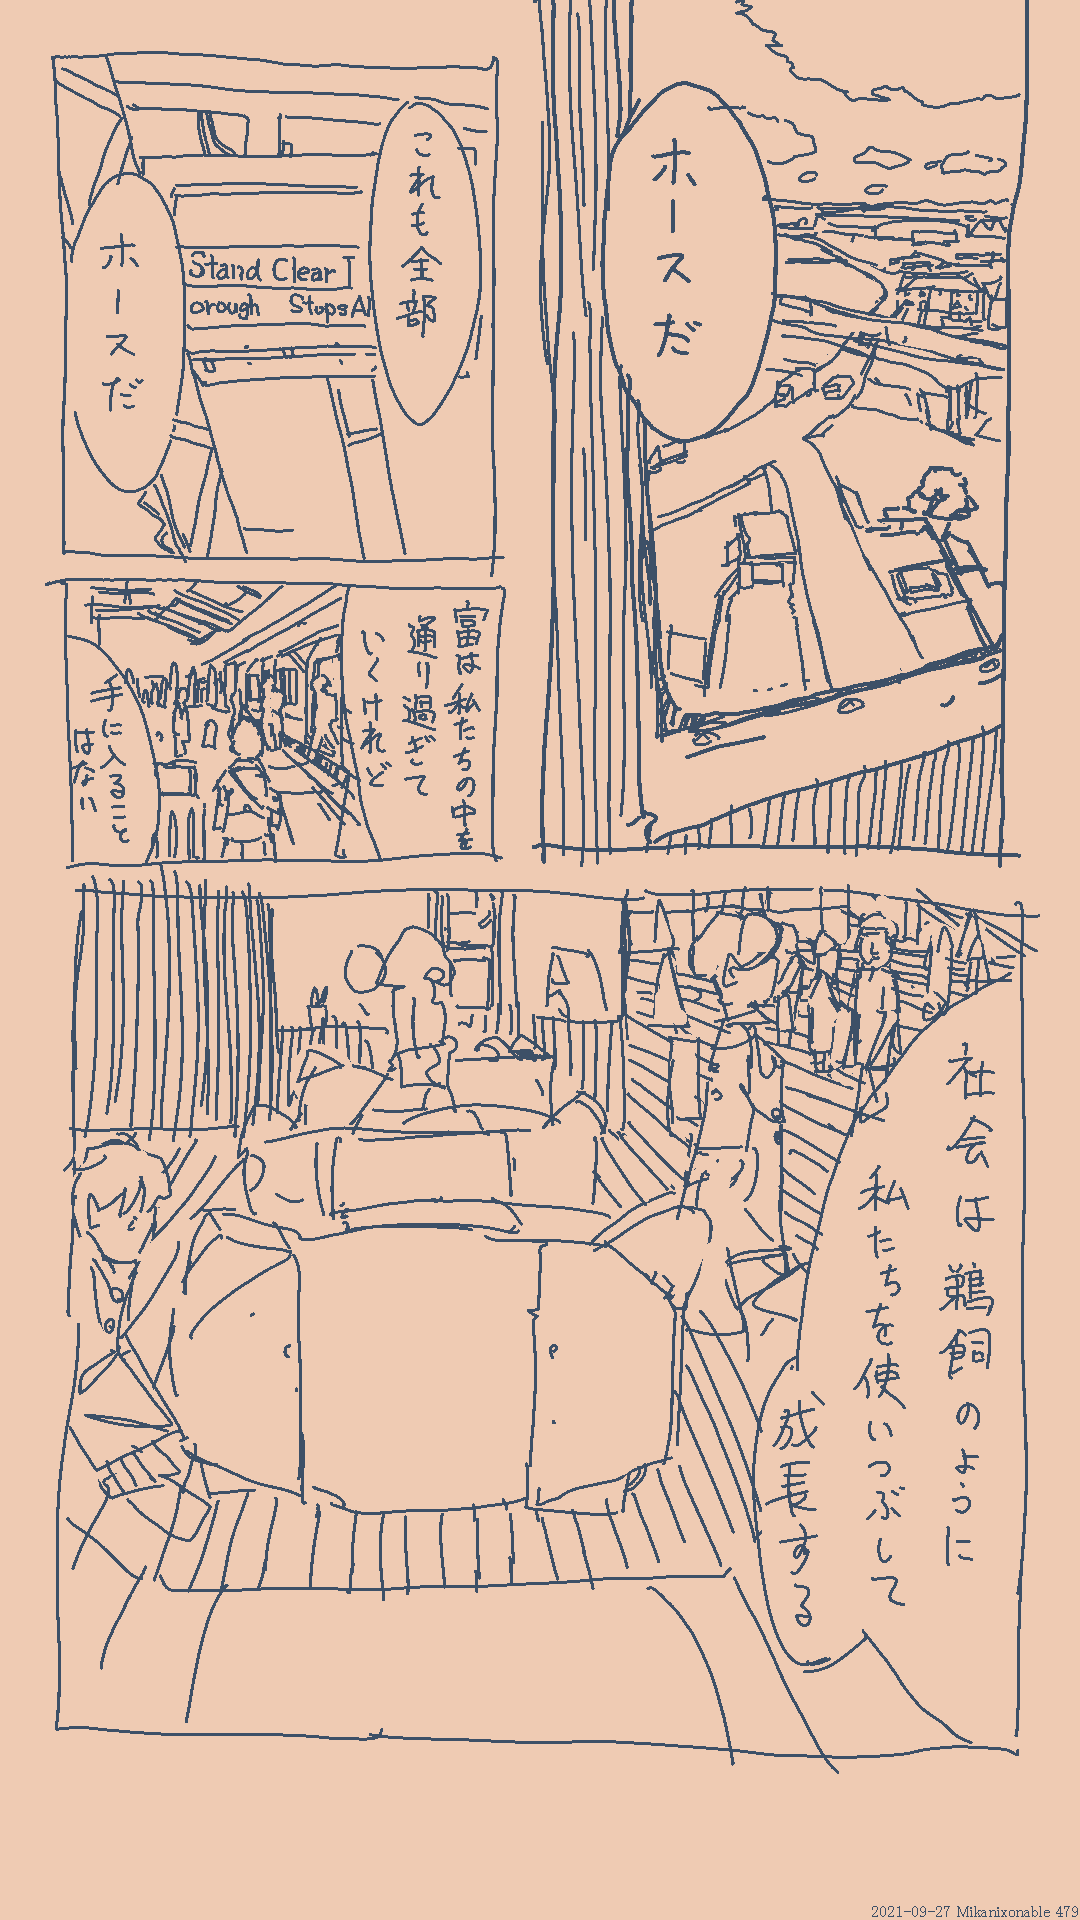 ホースだ
これも全部
ホースだ
Stand Clear
orough Stops At
富は私たちの中を
通り過ぎて
いくけれど
手に入ること
はない
社会は鵜飼のように
私たちを使いつぶして
成長する
2021-09-27 Mikanixonable 479